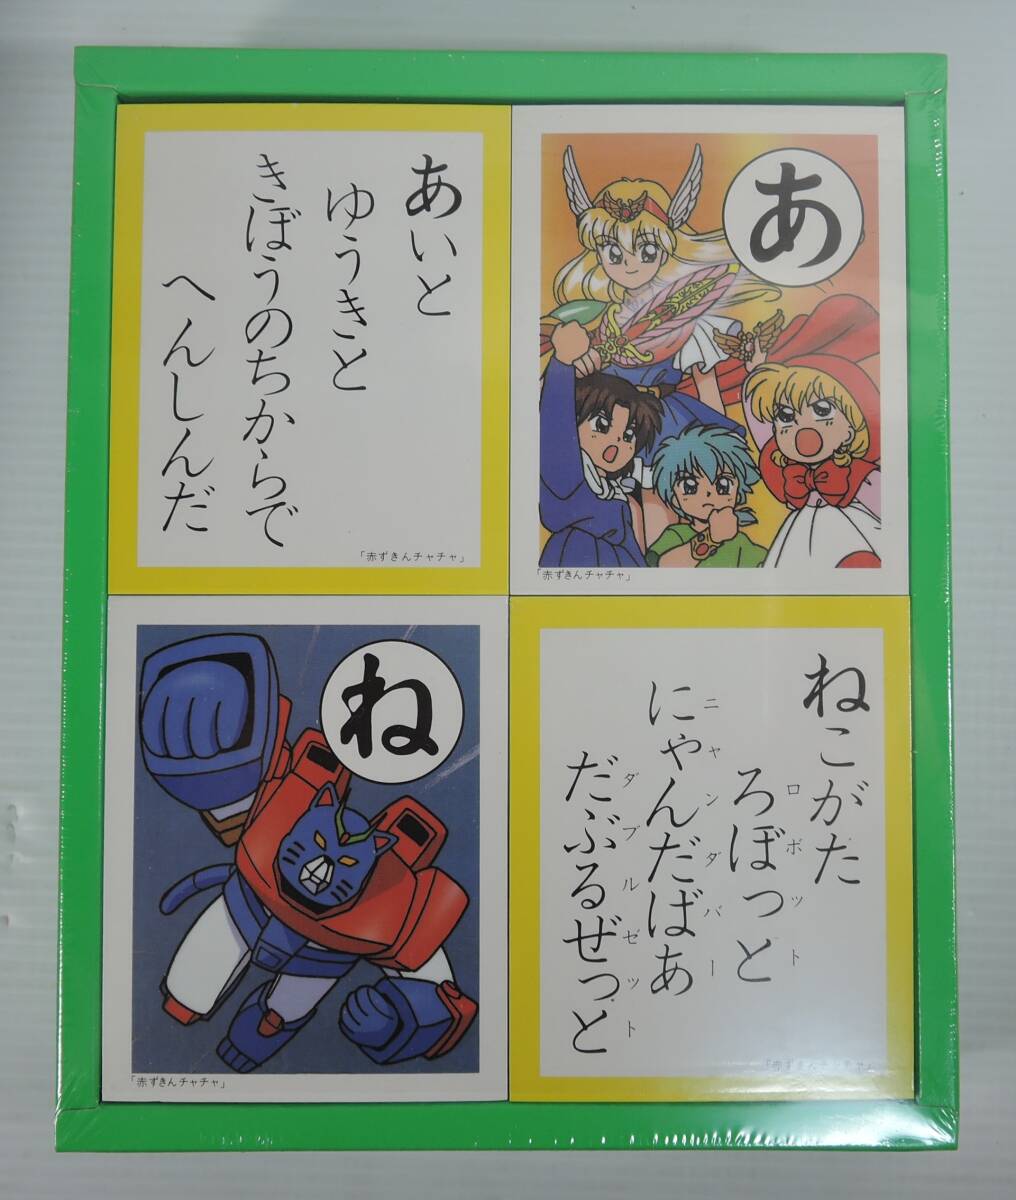 あいと
ゆうきと
きぼうのちからで
へんしんだ
「赤ずきんチャチャ」
あ
「赤ずきんチャチャ」
ね
「赤ずきんチャチャ」
ねこがた
ろぼっと
ロボット
にゃんだばあ
ニャンダバー
だぶるぜっと
ダブルゼット
「赤ずきんチャチャ」